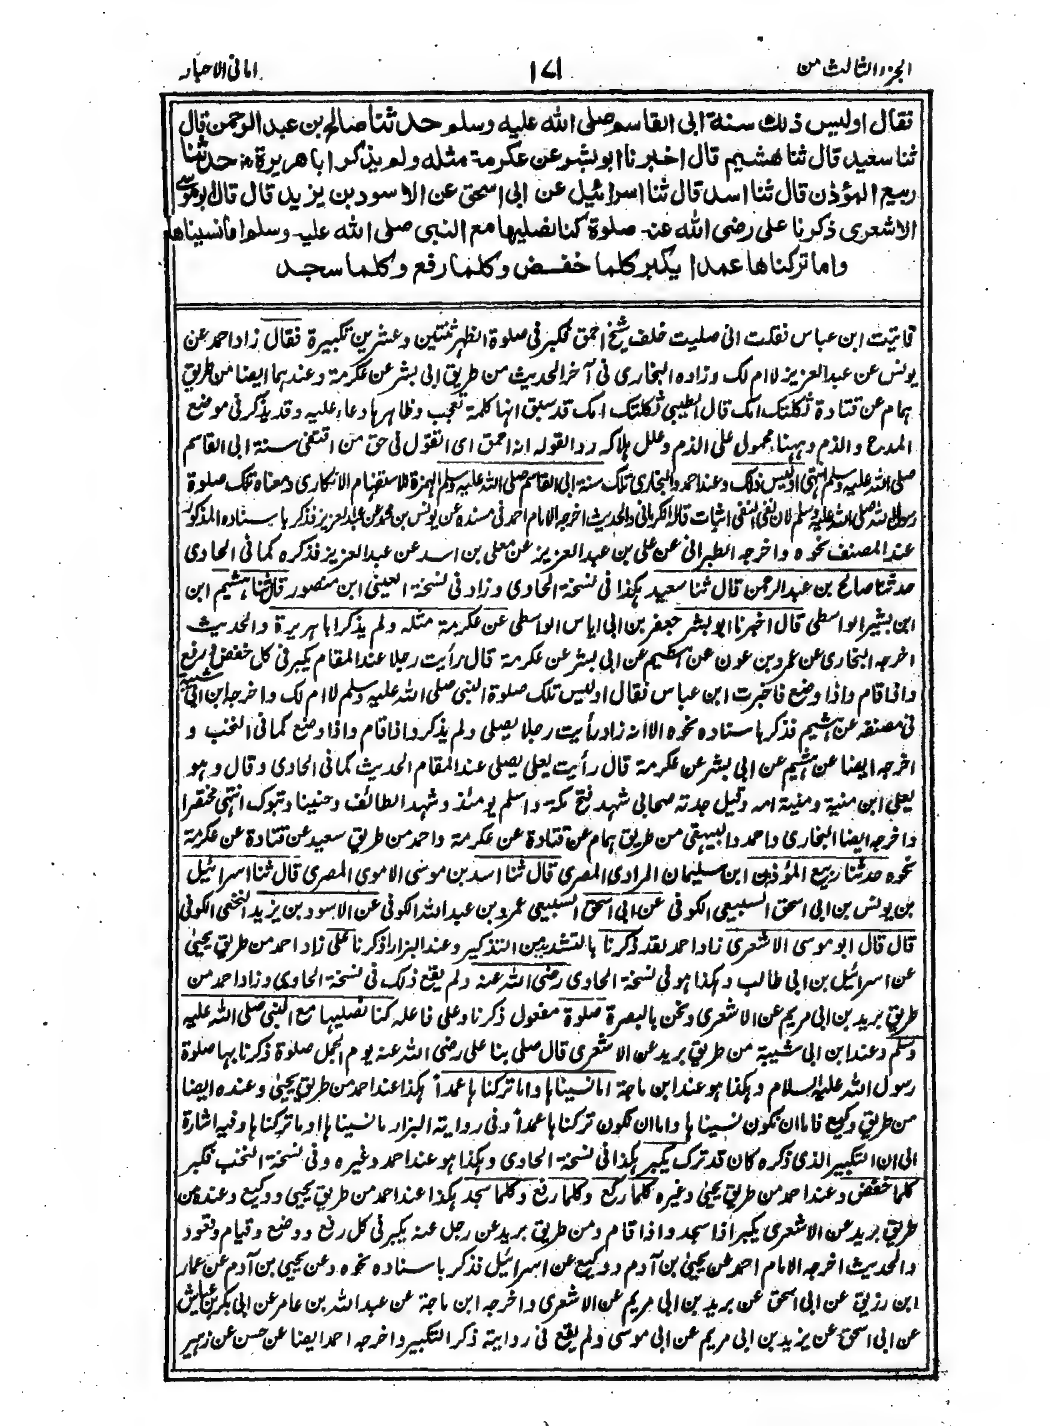 الجزء الثالث من
١٧١
امانى الاحبار
فقال اوليس ذلك سنة ابى القاسم صلى الله عليه وسلم حدثنا صالح بن عبد الرحمن قال
ثنا سعيد قال ثنا هشيم قال اخبرنا ابو بشر عن عكرمة مثله ولم يذكر ابا هريرة حدثنا
ربيع المؤذن قال ثنا اسد قال ثنا اسرائيل عن ابى اسحق عن الاسود بن يزيد قال قال ابو موسى
الاشعرى ذكرنا على رضى الله عنه صلوة كنا نصليها مع النبى صلى الله عليه وسلم اما نسيناها
واما تركناها عمدا يكبر كلما خفض وكلما رفع وكلما سجد
فاتيت ابن عباس فقلت انى صليت خلف شيخ احمق فكبر فى صلوة الظهر ثنتين وعشرين تكبيرة فقال زاد احمد عن
يونس عن عبد العزيز لا ام لك وزاده البخارى فى آخر الحديث من طريق ابى بشر عن عكرمة وعندهما ايضا من طريق
همام عن قتادة ثكلتك امك قال الطيبى ثكلتك امك قد سبق انها كلمة تعجب وظاهرها دعاء عليه وقد يذكر فى موضع
المدح والذم وههنا محمول على الذم وعلل هلاكه رد القوله انه احمق اى اتقول فى حق من اقتفى سنة ابى القاسم
صلى الله عليه وسلم انتهى اوليس ذلك وعند احمد والبخارى تلك سنة ابى القاسم صلى الله عليه وسلم الهمزة للاستفهام الانكارى ومعناه تلك صلوة
رسول الله صلى الله عليه وسلم لان نفى النفى اثبات قاله الكرمانى والحديث اخرجه الامام احمد فى مسنده عن يونس بن محمد عن عبد العزيز فذكر باسناده المذكور
عند المصنف نحوه واخرجه الطبرانى عن على بن عبد العزيز عن معلى بن اسد عن عبد العزيز فذكره كما فى الحاوى
حدثنا صالح بن عبد الرحمن قال ثنا سعيد هكذا فى نسخة الحاوى وزاد فى نسخة العينى ابن منصور قال ثنا هشيم ابن
ابن بشير الواسطى قال اخبرنا ابو بشر جعفر بن ابى اياس الواسطى عن عكرمة مثله ولم يذكر ابا هريرة والحديث
اخرجه البخارى عن عمرو بن عون عن هشيم عن ابى بشر عن عكرمة قال رأيت رجلا عند المقام يكبر فى كل خفض ورفع
واذا قام واذا وضع فاخبرت ابن عباس فقال اوليس تلك صلوة النبى صلى الله عليه وسلم لا ام لك واخرجه ابن ابى شيبة
فى مصنفه عن هشيم فذكر باسناده نحوه الا انه زاد رأيت رجلا يصلى ولم يذكر واذا قام واذا وضع كما فى النخب و
اخرجه ايضا عن هشيم عن ابى بشر عن عكرمة قال رأيت يعلى يصلى عند المقام الحديث كما فى الحاوى وقال وهو
يعلى ابن منية ومنية امه وقيل جدته صحابى شهد فتح مكة واسلم يومئذ وشهد الطائف وحنينا وتبوك انتهى مختصرا
واخرجه ايضا البخارى واحمد والبيهقى من طريق همام عن قتادة عن عكرمة واحمد من طريق سعيد عن قتادة عن عكرمة
نحوه حدثنا ربيع المؤذن ابن سليمان المرادى المصرى قال ثنا اسد بن موسى الاموى المصرى قال ثنا اسرائيل
بن يونس بن ابى اسحق السبيعى الكوفى عن ابى اسحق السبيعى عمرو بن عبد الله الكوفى عن الاسود بن يزيد النخعى الكوفى
قال قال ابو موسى الاشعرى زاد احمد لقد ذكرنا بالتشديد من التذكير وعند البزار اذكرنا على زاد احمد من طريق يحيى
عن اسرائيل بن ابى طالب وهكذا هو فى نسخة الحاوى رضى الله عنه ولم يقع ذلك فى نسخة الحاوى وزاد احمد من
طريق بريد بن ابى مريم عن الاشعرى ونحن بالبصرة صلوة مفعول ذكرنا وعلى فاعله كنا نصليها مع النبى صلى الله عليه
وسلم وعند ابن ابى شيبة من طريق بريد عن الاشعرى قال صلى بنا على رضى الله عنه يوم الجمل صلوة ذكرنا بها صلوة
رسول الله عليه السلام وهكذا هو عند ابن ماجة اما نسيناها واما تركناها عمدا هكذا عند احمد من طريق يحيى وعنده ايضا
من طريق وكيع فاما ان نكون نسيناها واما ان نكون تركناها عمدا وفى رواية البزار ما نسيناها او ما تركناها وفيه اشارة
الى ان التكبير الذى ذكره كان قد ترك يكبر هكذا فى نسخة الحاوى وهكذا هو عند احمد وغيره وفى نسخة النخب فكبر
كلما خفض وعند احمد من طريق يحيى وغيره كلما ركع وكلما رفع وكلما سجد هكذا عند احمد من طريق يحيى ووكيع وعنده من
طريق بريد عن الاشعرى يكبر اذا سجد واذا قام ومن طريق بريد عن رجل عنه يكبر فى كل رفع ووضع وقيام وقعود
والحديث اخرجه الامام احمد عن يحيى بن آدم ووكيع عن اسرائيل فذكر باسناده نحوه وعن يحيى بن آدم عن عمار
ابن رزيق عن ابى اسحق عن بريد بن ابى مريم عن الاشعرى واخرجه ابن ماجة عن عبد الله بن عامر عن ابى بكر بن عياش
عن ابى اسحق عن يزيد بن ابى مريم عن ابى موسى ولم يقع فى رواية ذكر التكبير واخرجه احمد ايضا عن حسن عن زهير